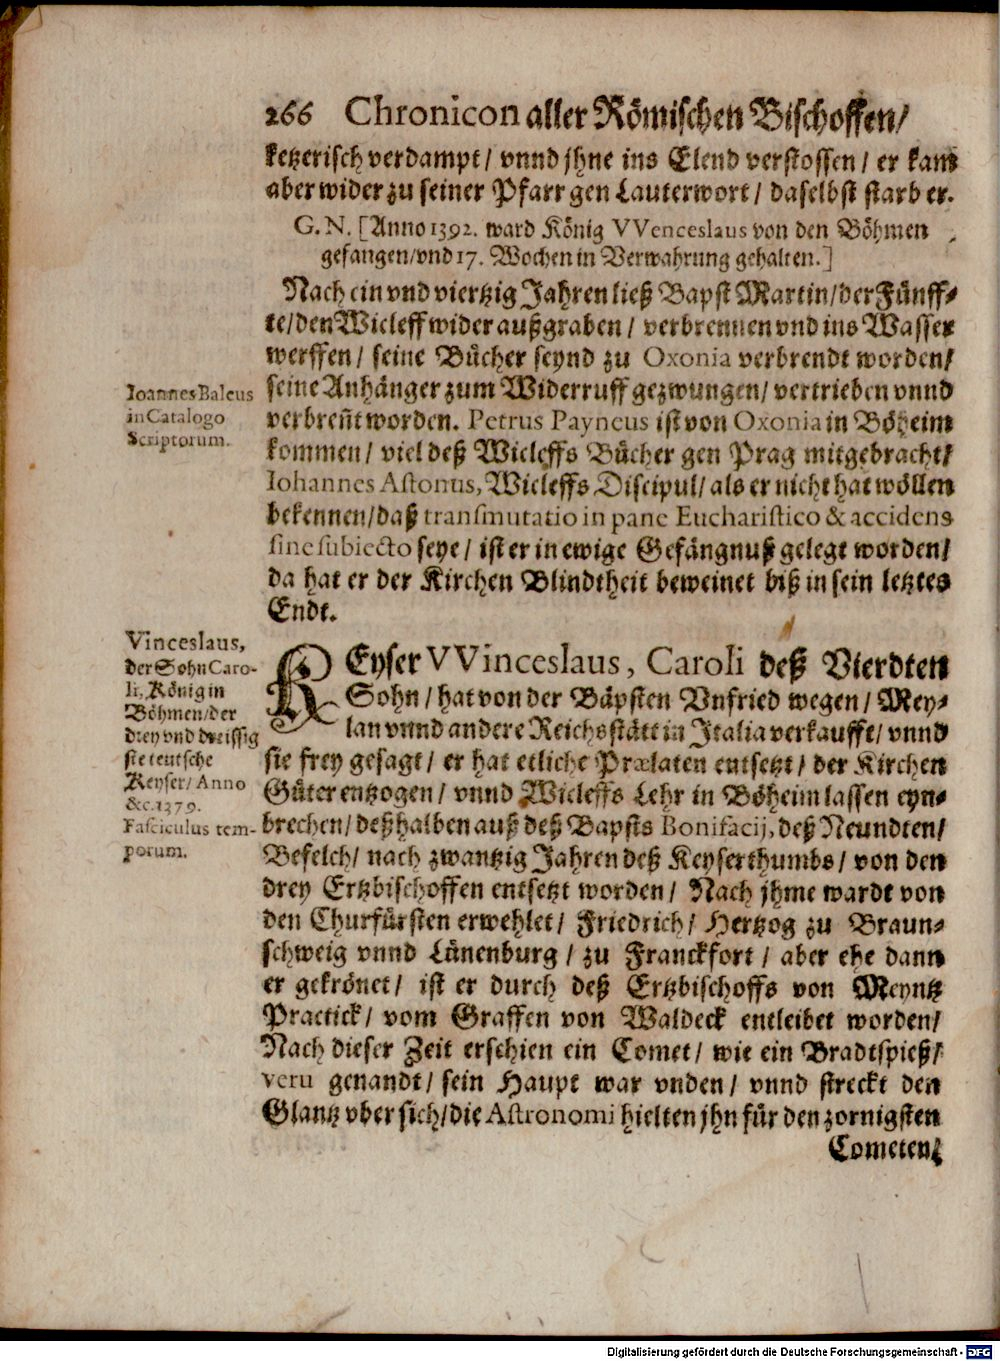 266 Chronicon aller Römischen Bischoffen/
ketzerisch verdampt/ vnnd jhne ins Elend verstossen/ er kam
aber wider zu seiner Pfarr gen Lauterwort/ daselbst starb er.
G. N. [Anno 1392. ward König VVenceslaus von den Böhmen
gefangen/vnd 17. Wochen in Verwahrung gehalten.]
Nach ein vnd viertzig Jahren ließ Bapst Martin/der Fünff-
te/den Wicleff wider außgraben/ verbrennen vnd ins Wasser
werffen/ seine Bücher seynd zu Oxonia verbrendt worden/
seine Anhänger zum Widerruff gezwungen/ vertrieben vnnd
verbreñt worden. Petrus Payneus ist von Oxonia in Böheim
kommen/ viel deß Wicleffs Bücher gen Prag mitgebracht/
Iohannes Astonus, Wicleffs Discipul/ als er nicht hat wöllen
bekennen/daß transmutatio in pane Eucharistico & accidens
sine subiecto seye/ ist er in ewige Gefängnuß gelegt worden/
da hat er der Kirchen Blindtheit beweinet biß in sein letztes
Endt.
Ioannes Baleus
in Catalogo
Scriptorum.
KEyser VVinceslaus, Caroli deß Vierdten
Sohn/ hat von der Bäpsten Vnfried wegen/ Mey-
lan vnnd andere Reichsstätt in Italia verkaufft/ vnnd
sie frey gesagt/ er hat etliche Prælaten entsetzt/ der Kirchen
Güter entzogen/ vnnd Wicleffs Lehr in Böheim lassen eyn-
brechen/ deßhalben auß deß Bapsts Bonifacij, deß Neundten/
Befelch/ nach zwantzig Jahren deß Keyserthumbs/ von den
drey Ertzbischoffen entsetzt worden/ Nach jhme wardt von
den Churfürsten erwehlet/ Friedrich/ Hertzog zu Braun-
schweig vnnd Lünenburg/ zu Franckfort/ aber ehe dann
er gekrönet/ ist er durch deß Ertzbischoffs von Meyntz
Practick/ vom Graffen von Waldeck entleibet worden/
Nach dieser Zeit erschien ein Comet/ wie ein Bradtspieß/
veru genandt/ sein Haupt war vnden/ vnnd streckt den
Glantz vber sich/die Astronomi hielten jhn für den zornigsten
Cometen/
Vinceslaus,
der Sohn Caro-
li, König in
Böhmen/der
drey vnd dreissig
ste teutsche
Keyser/ Anno
&c. 1379.
Fasciculus tem-
porum.
Digitalisierung gefördert durch die Deutsche Forschungsgemeinschaft - DFG